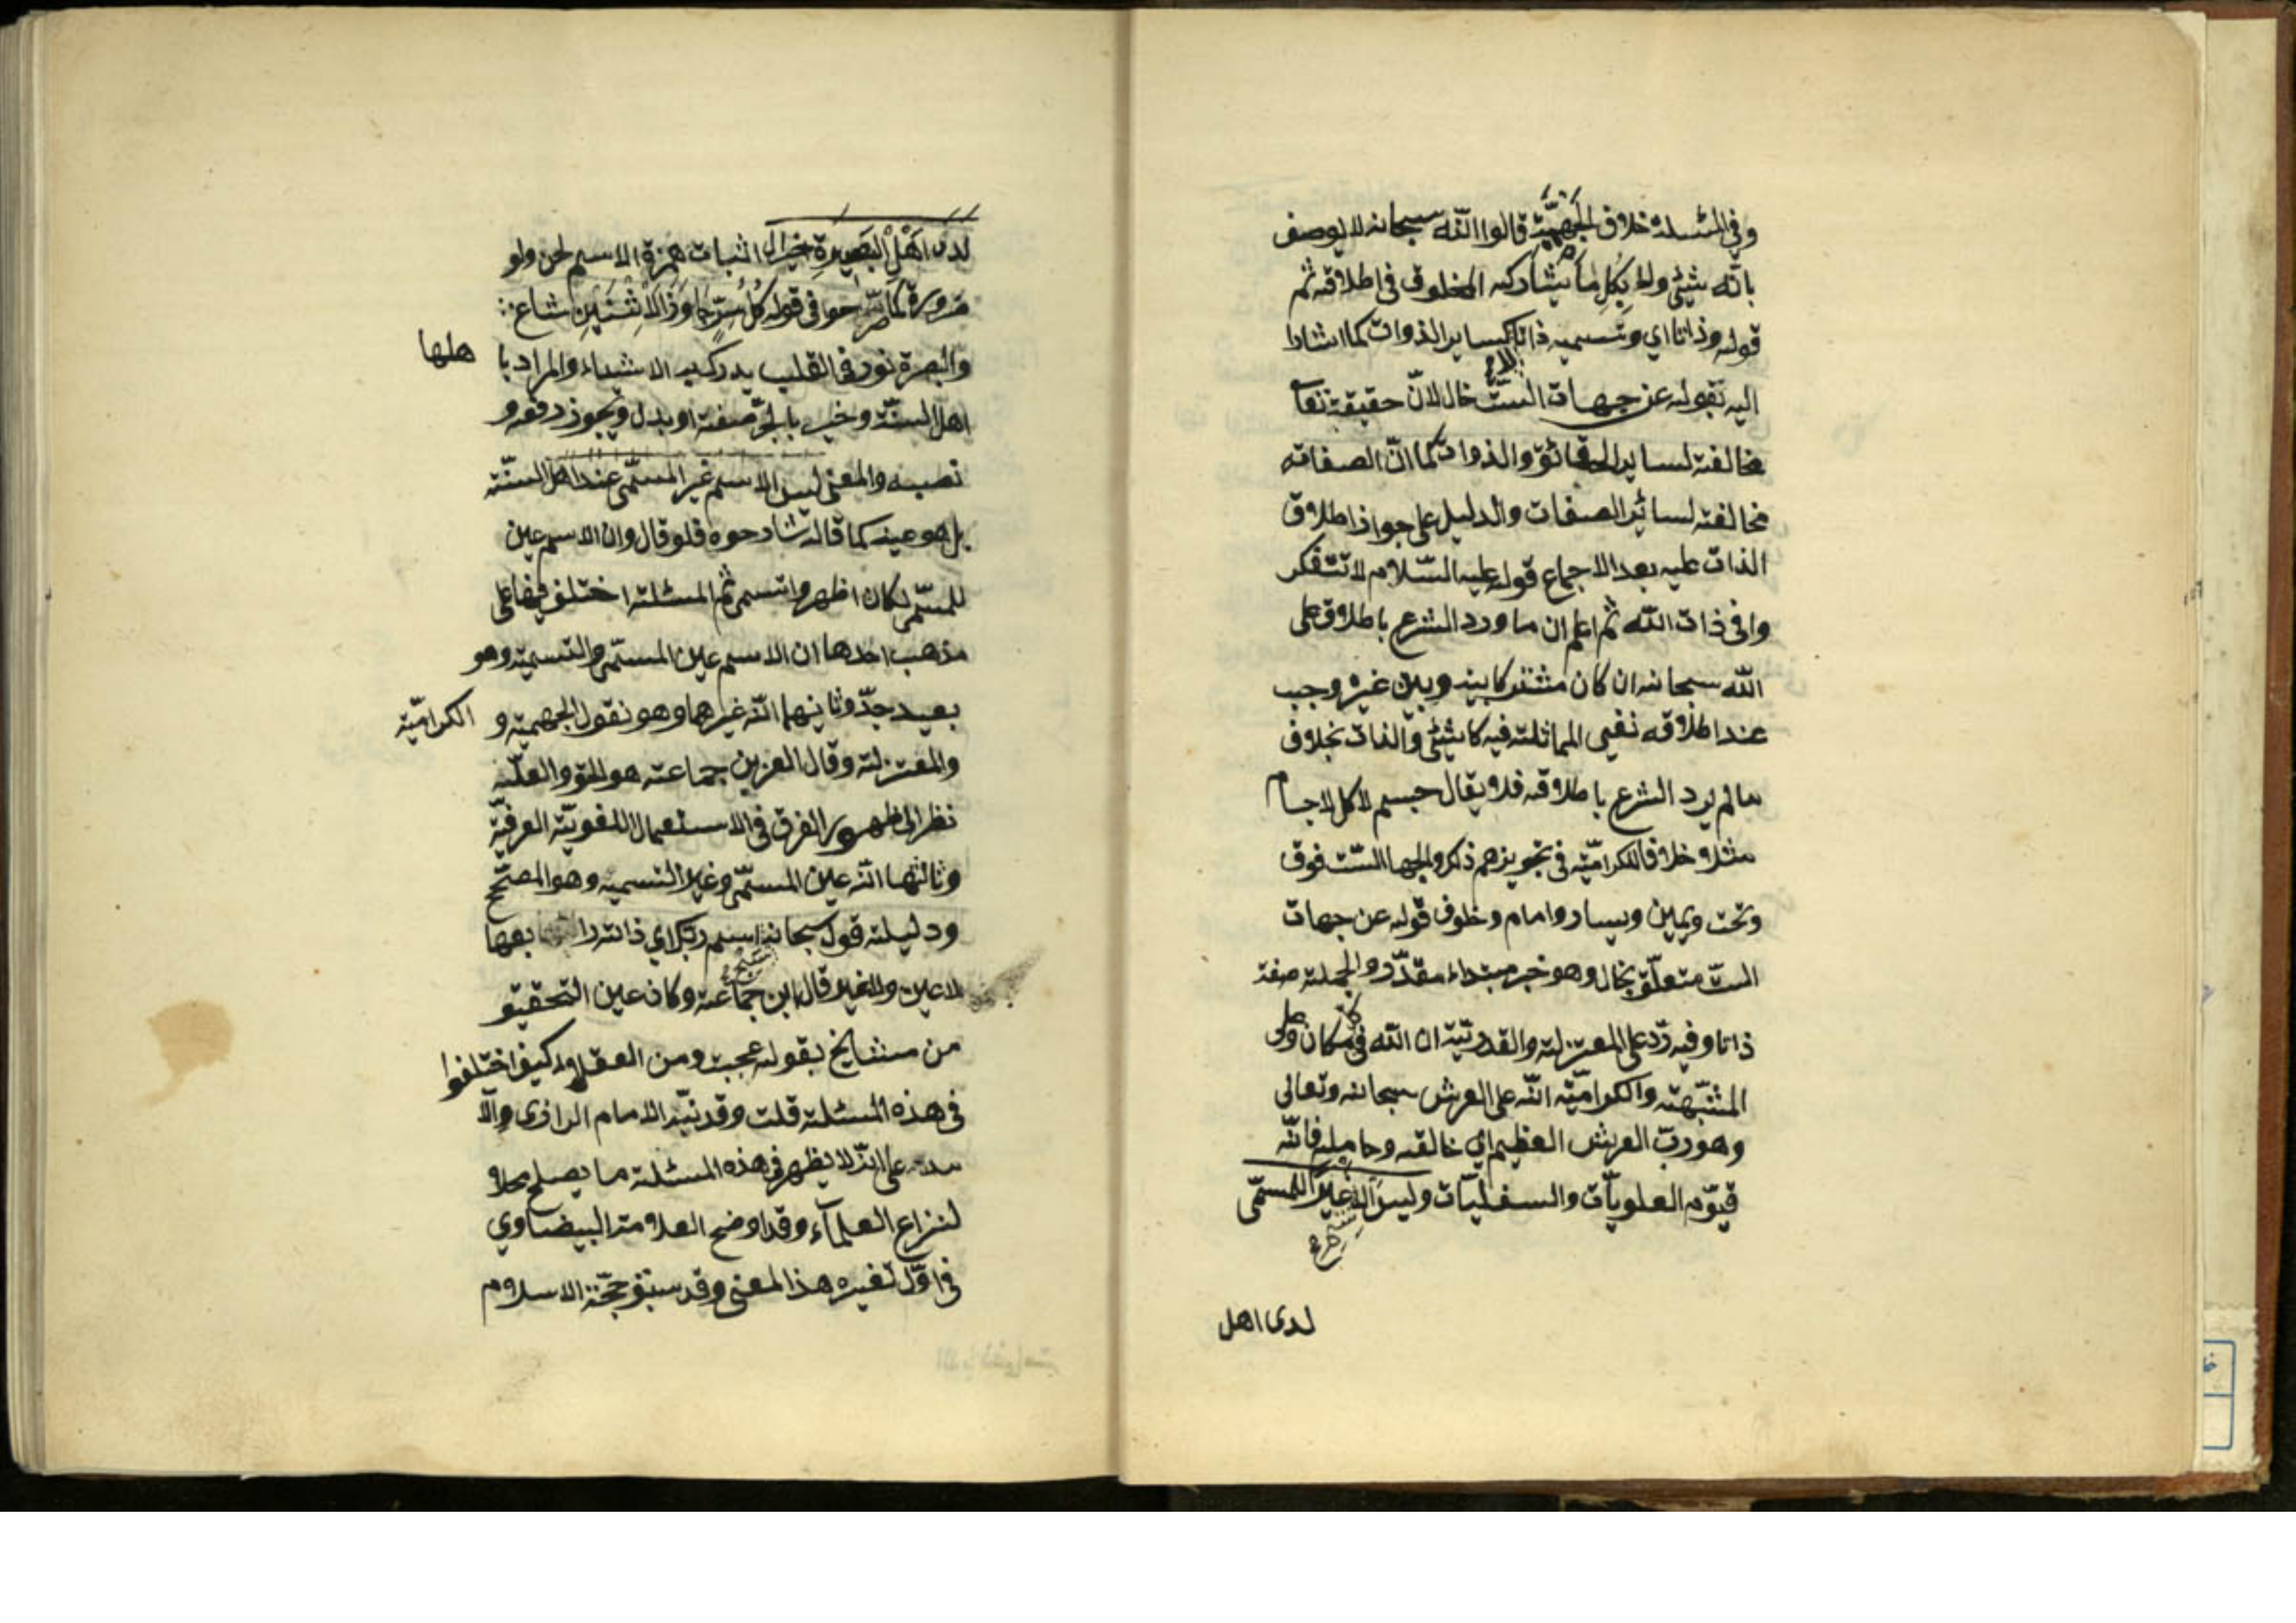 وفي المسئلة خلاف الجَهْمِيَّة قالوا انّه سبحانه لا يوصف
بانّه شيئ ولا بِكُلِ ما يشاركه المخلوق في اطلاقه ثم
قوله وذاتا اي ونسميه ذاتا كساير الذوات كما اشارا
اليه بقوله عن جهات الستّ خال لانّ حقيقته تعا
مخالفة لساير الحقائق والذوات كما انّ الصفاته
مخالفته لسائر الصفات والدليل على جواز اطلاق
الذات عليه بعد الاجماع قوله عليه السّلام لا تتفكر
وافى ذات الله ثم اعلم ان ما ورد الشرع باطلاق على
الله سبحانه ان كان مشتركا بينه وبين غيره وجب
عند اطلاقه نفيى المماثلته فيه كا شيئى والذات بخلاف
مالم يرد الشرع باطلاقه فلا يقال جسم لا كل لاجسام
مثلا خلافا للكراميّة في تجويزهم ذكر والجهاالستّ فوق
وتحت ويمين ويسار وامام وخلوف قوله عن جهات
الستّ متعلّق بخال وهو خبر مبتداء مقدّر والجملته صفة
ذاتا وفيه ردّ على المعتزلته والقدريّة ان الله فى كل مكان وعلى
المشبّهته والكراميّة انّه على العرش سبحانه وتعالى
وهو ربّ العرش العظيم اي خالقه وحامله فانّه
قيوّم العلويات والسفليّات وليس الاسم غيراً للمسمّى
شرح
لدى اهل
لدى اَهْلِ البَصِيرَةِ خيرال اثبات همزة الاسم لحن ولو
ضرورة كما صرّحوا فى قوله كُلُ سِرٍّ جَاوَزَ الاِثْنَيْنِ شاع
والبصرة نور فى القلب يدرك به الاشياء والمراد با هلها
اهل السنّة وخير بالجرّ صفته او بدل ويجوز رفعه و
نصبه والمعنى ليس الاسم غير المسمّى عند اهل السنّة
بل هو عينه كما قاله شارحوه فلو قال وان الاسم عين
للمسمّى لكان اظهر واتسمى ثم المسئلته اختلف فيها على
مذهب احدها ان الاسم عين المسمّى والتسميته وهو
بعيد جدّ وثانيهما انّه غيرهما وهو نقول الجهميّة و الكراميّة
والمعتزلته وقال العز بن جماعته هو الحق والعلّه
نظر الى ظهور الفرق فى الاستعمال اللغويّة العرفيّة
وثالثها انّه عين المسمّى وغير التسميه وهو المصحّح
ودليلته قوله سبحانه سبح اسم ربك اي ذاته رابعها
لاعين ولاغير قال ابن جماعته وكان عين التحقيق
من مشايخ بقوله عجبت ومن العقلاء كيف اختلفوا
فى هذه المسئلته قلت وقد نبّه الامام الرازى والآ
مدى على انّه لا يظهر فى هذه المسئلته ما يصلح محلا
لنزاع العلمآء وقد اوضح العلامته البيضاوي
فى اوّل تفيره هذا المعنى وقد سبق حجّة الاسلام